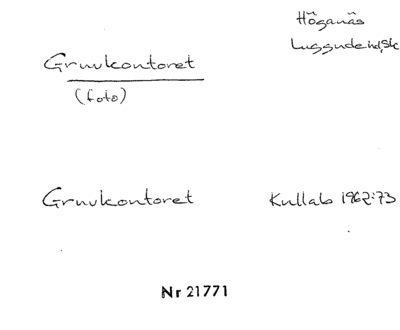 Höganäs
Luggude hd, Sk
Gruvkontoret
(foto)
Gruvkontoret Kullab 1962:73
Nr 21771